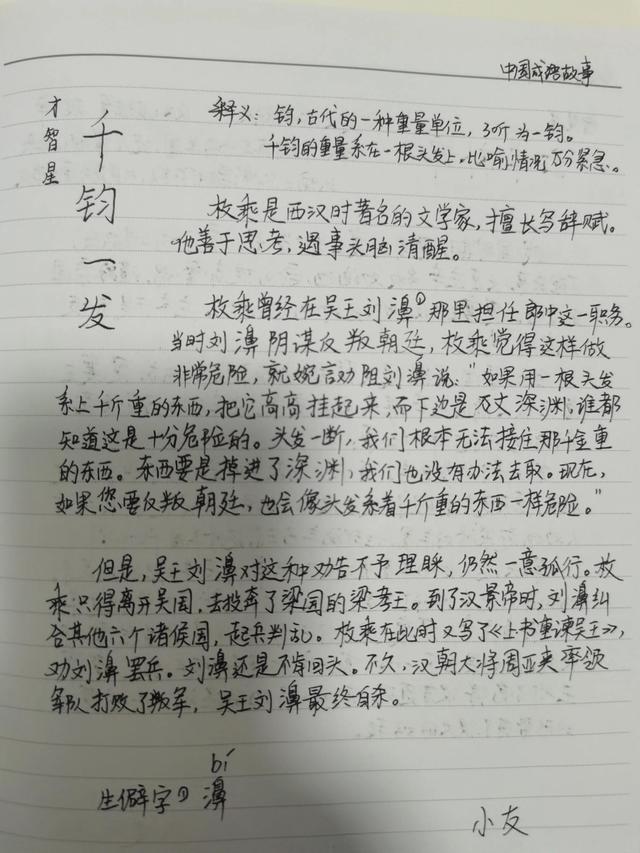 中国成语故事
才智星
千钧一发
释义：钧，古代的一种重量单位，30斤为一钧。
千钧的重量系在一根头发上，比喻情况万分紧急。
枚乘是西汉时著名的文学家，擅长写辞赋。
他善于思考，遇事头脑清醒。
枚乘曾经在吴王刘濞①那里担任郎中这一职务。
当时刘濞阴谋反叛朝廷，枚乘觉得这样做
非常危险，就婉言劝阻刘濞说：“如果用一根头发
系上千斤重的东西，把它高高挂起来，而下边是万丈深渊，谁都
知道这是十分危险的。头发一断，我们根本无法接住那千金重
的东西。东西要是掉进了深渊，我们也没有办法去取。现在，
如果您要反叛朝廷，也会像头发系着千斤重的东西一样危险。”
但是，吴王刘濞对这种劝告不予理睬，仍然一意孤行。枚
乘只得离开吴国，去投奔了梁国的梁孝王。到了汉景帝时，刘濞纠
合其他六个诸侯国，起兵判乱。枚乘在此时又写了《上书重谏吴王》，
劝刘濞罢兵。刘濞还是不肯回头。不久，汉朝大将周亚夫率领
军队打败了叛军，吴王刘濞最终自杀。
bí
生僻字①濞
小友